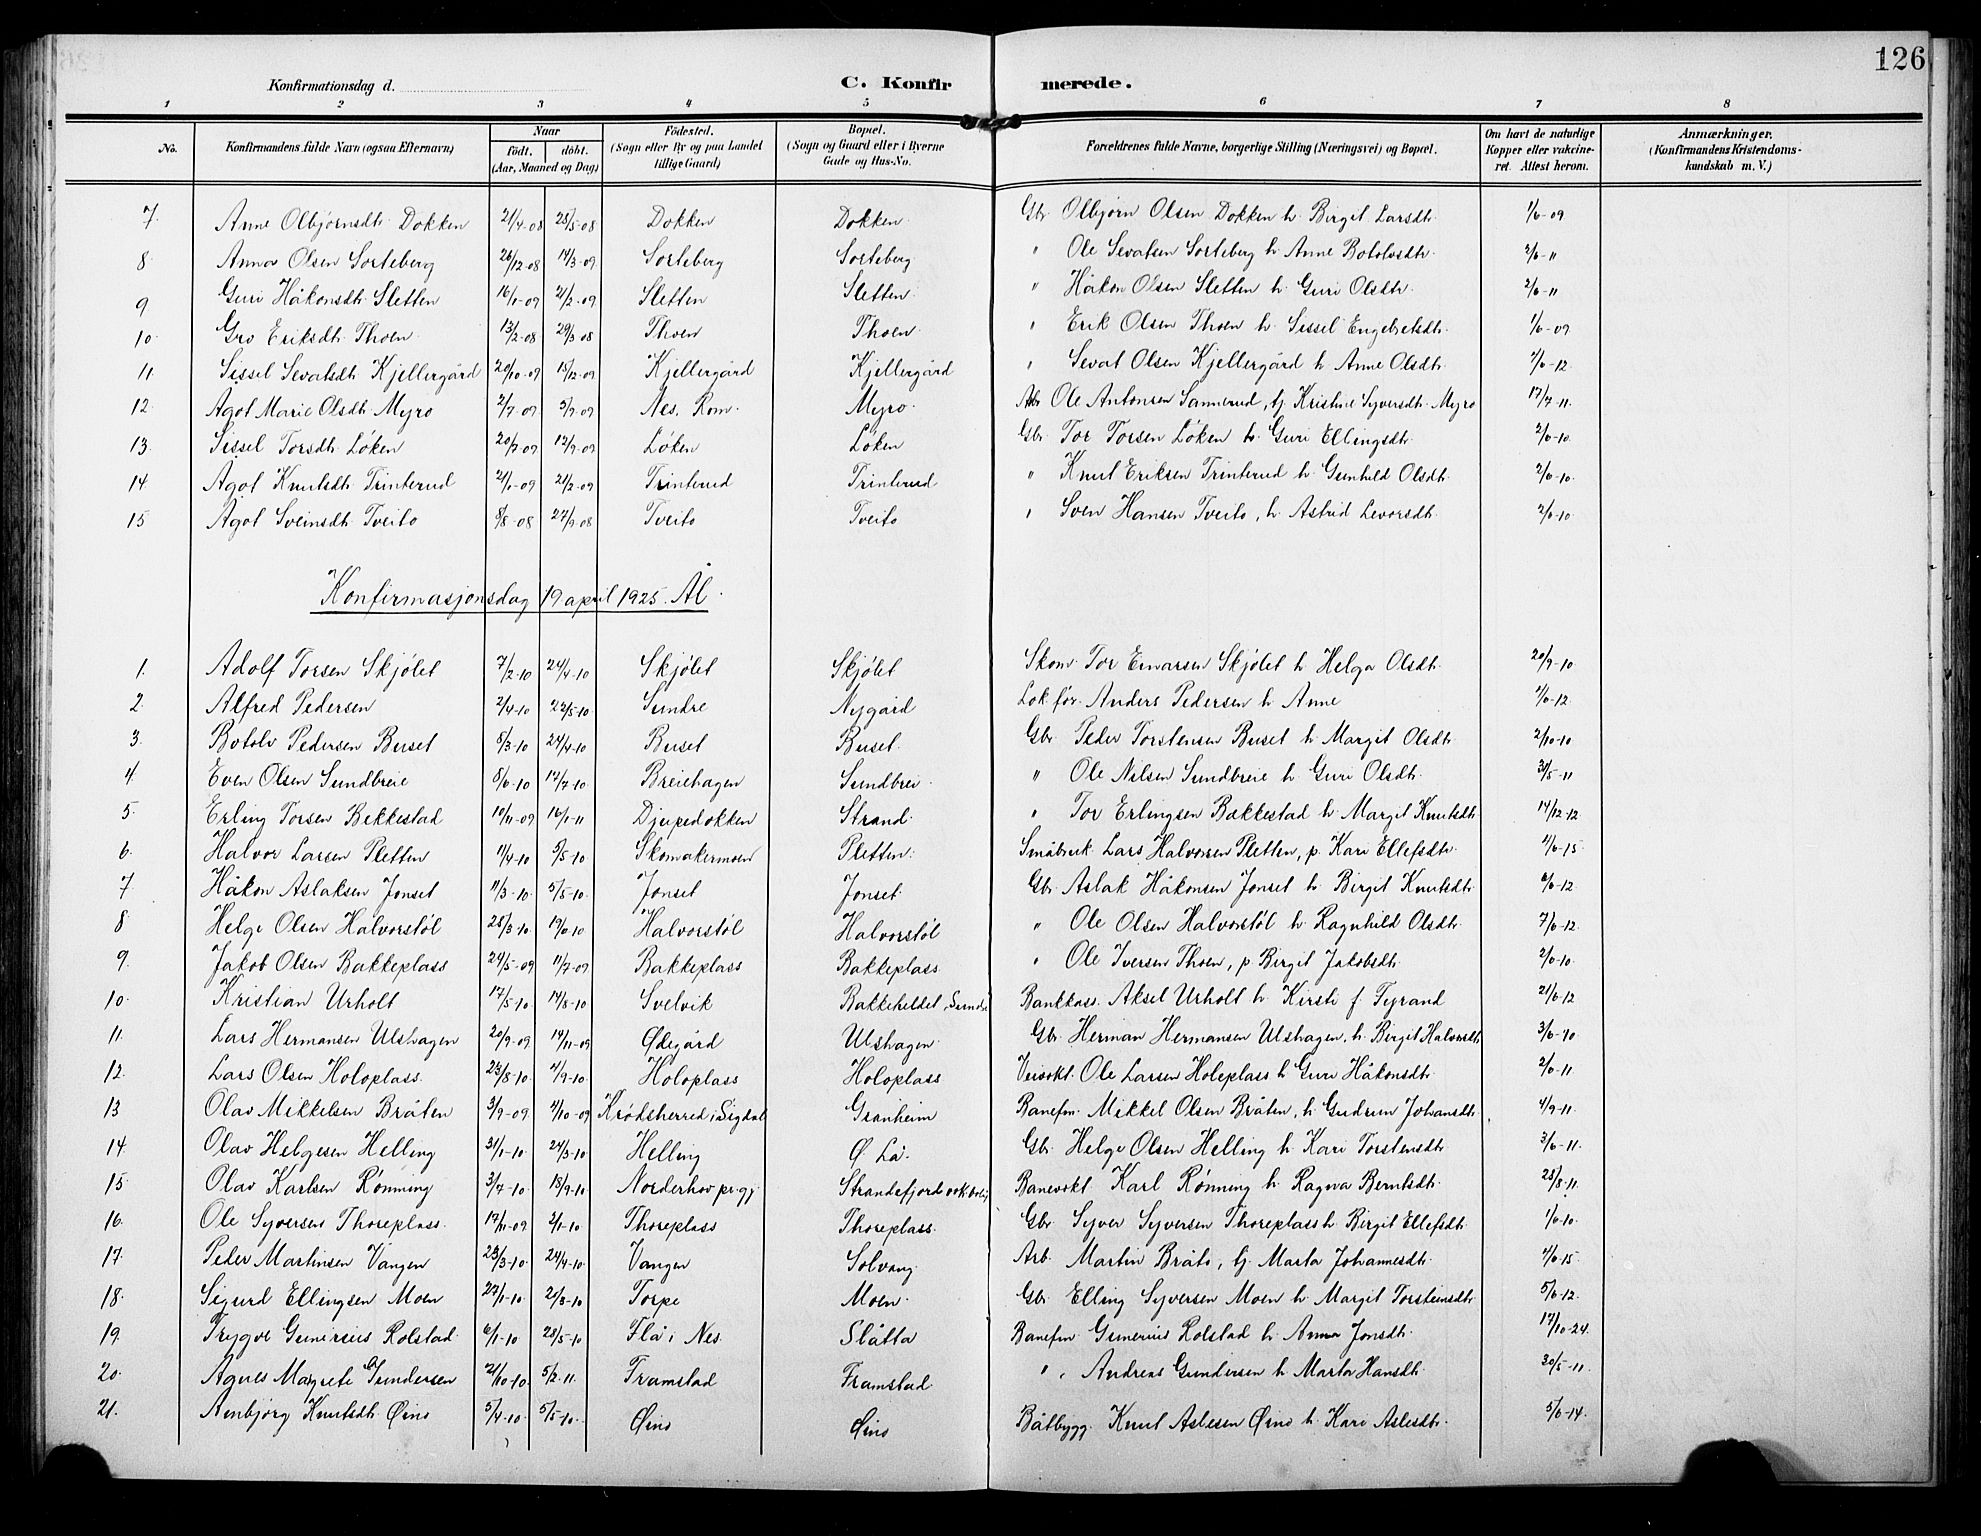 126
Konfirmationsdag d. C. Konfirmerede.
1 2 3 4 5 6 7 8
No. Konfirmandens fulde Navn (ogsaa Efternavn) Naar födt. döbt. (Aar, Maaned og Dag) Födested. (Sogn eller By og paa Landet tillige Gaard) Bopæl. (Sogn og Gaard eller i Byerne Gade og Hus-No. Forældrenes fulde Navne, borgerlige Stilling (Næringsvei) og Bopæl. Om havt de naturlige Kopper eller vakcineret. Attest herom. Anmærkninger. (Konfirmandens Kristendomskundskab m. V.)
7. Anne Olbjørnsdtr. Dokken 21/4-08 28/5-08 Dokken Dokken Gbr. Olbjørn Olsen Dokken h. Birgit Larsdtr. 1/6-09
8. Anna Olsen Sorteberg 26/12-08 14/3-09 Sorteberg Sorteberg " Ole Sevatsen Sorteberg h. Anne Botolvsdtr. 2/6-11
9 Guri Håkonsdtr. Sletten 16/1-09 21/2-09 Sletten Sletten " Håkon Olsen Sletten h. Guri Olsdtr. 2/6-11
10. Gro Eriksdtr. Thoen 13/2-08 29/3-08 Thoen Thoen " Erik Olsen Thoen h. Sissel Engebretsdtr. 1/6-09
11 Sissel Sevatsdtr. Kjellergård 20/10-09 15/12-09 Kjellergård Kjellergård " Sevat Olsen Kjellergård h Anne Olsdtr. 7/6-12
12. Agot Marie Olsdtr. Myro 2/7-09 5/9-09 Nes, Rom. Myro. Arb. Ole Antonsen Sannerud, tj. Kristine Syversdtr. Myro 17/7-11.
13. Sissel Torsdtr. Løken 20/7-09 12/9-09 Løken Løken Gbr. Tor Torsen Løken h. Guri Ellingsdtr. 2/6-10.
14 Agot Knutsdtr. Trinterud 2/1-09 21/2-09 Trinterud Trinterud " Knut Eriksen Trinterud h. Gunhild Olsdtr. 2/6-10.
15 Agot Sveinsdtr. Tveito 8/8-08 27/9-08 Tveito Tveito " Sven Hansen Tveito, h. Astrid Levorsdtr. 2/6-10
Konfirmasjonsdag 19 april 1925. Ål.
1. Adolf Torsen Skjølet 7/2-10 24/4-10 Skjølet Skjølet Skom. Tor Einarsen Skjølet h. Helga Olsdtr. 20/9-10
2. Alfred Pedersen 2/4-10 22/5-10 Sundre Nygård Lok.før. Anders Pedersen h. Anne 7/6-12
3. Botolv Pedersen Buset 8/3-10 24/4-10 Buset Buset. Gbr. Peder Torstensen Buset h. Margit Olsdtr. 2/10-10
4 Even Olsen Sundbreie 8/6-10 17/7-10 Breiehagen Sundbrei. " Ole Nilsen Sundbreie h. Guri Olsdtr. 30/5-11
5. Erling Torsen Bekkestad 10/11-09 16/1-11 Djupedokken Strand. " Tor Erlingsen Bakkestad h. Margit Knutsdtr. 14/12-12
6. Halvor Larsen Pletten 11/4-10 5/5-10 Skomakermoen Pletten. Småbruk. Lars Halvorsen Pletten, p. Kari Ellefsdtr. 11/6-15
7 Håkon Aslaksen Jonset 11/3-10. 5/5-10 Jonset Jonset. Gbr. Aslak Håkonsen Jonset h. Birgit Knutsdtr. 6/6-12.
8 Helge Olsen Halvorstøl 28/3-10. 19/6-10 Halvorstøl Halvorstøl " Ole Olsen Halvorstøl h. Ragnhild Olsdtr. 7/6-12.
9. Jakob Olsen Bakkeplass 24/5-09 11/7-09. Bakkeplass Bakkeplass " Ole Iversen Thoen, p. Birgit Jakobsdtr. 2/6-10.
10. Kristian Urholt 17/5-10. 14/8-10 Svelvik Bakkeheldet, Sundre Bankkass. Aksel Urholt h. Kirsti f. Tyrand 21/6-12
11. Lars Hermansen Ulshagen 20/9-09. 14/11-09 Ødegård Ulshagen. Gbr. Herman Hermansen Ulshagen. h. Birgit Halvorsdtr. 3/6-10
12. Lars Olsen Holoplass. 23/8-10. 4/9-10. Holoplass Holoplass Veivokt. Ole Larsen Holeplass h. Guri Håkonsdtr. 2/6-11
13 Olav Mikkelsen Bråten 3/9-09. 4/10-09 Krødsherred i Sigdal Granheim Banefm. Mikkel Olsen Bråten, h. Gudrun Johansdtr. 4/9-11.
14. Olav Helgesen Helling 31/1-10. 24/3-10 Helling Ø. Lå. Gbr. Helge Olsen Helling h. Kari Torstensdtr. 3/6-11.
15. Olav Karlsen Rønning 3/7-10. 18/9-10 Norderhov pr.gj. Strandefjord vokt.bolig Banevokt. Karl Rønning h. Ragna Berntsdtr. 28/8-11.
16. Ole Syversen Thoreplass. 17/11-09 2/1-10 Thoreplass Thoreplass. Gbr. Syver Syversen Thoreplass h. Birgit Ellefsdtr. 1/6-10.
17. Peder Martinsen Vangen 23/3-10. 24/4-10. Vangen Solvang. Arb. Martin Bråto, tj. Marta Johannesdtr. 4/6-15.
18. Sigurd Ellingsen Moen 27/1-10. 20/3-10 Torpe Moen. Gbr. Elling Syversen Moen h. Margit Torsteinsdtr. 5/6-12.
19. Trygve Gunerius Rolstad. 6/1-10 28/5-10 Flå i Nes. Slåtta Banefm. Gunerius Rolstad h. Anna Jonsdtr. 17/10-24.
20. Agnes Margrete Gundersen 21/10-10. 5/2-11. Framstad Framstad " " Andreas Gundersen h. Marta Hansdtr. 30/5-11.
21. Anbjørg Knutsdtr. Øino 5/4-10. 5/5-10. Øino Øino Båtbygg. Knut Aslesen Øino h. Kari Aslesdtr. 5/6-14.